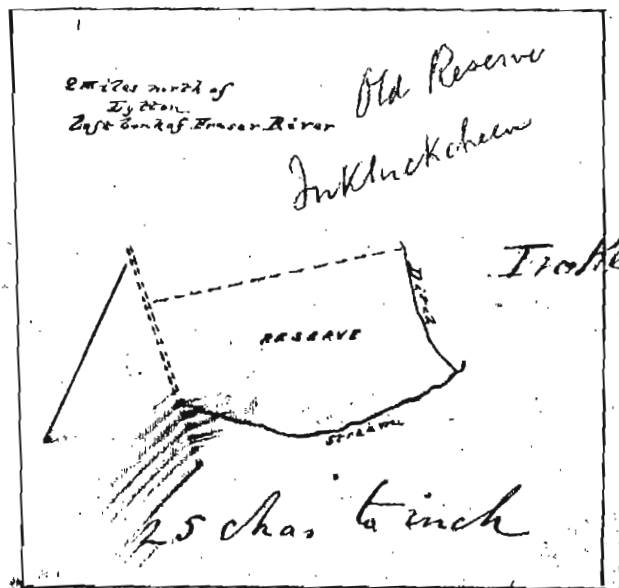 2 miles north of
Lytton.
East bank of Fraser River
Old Reserve
Inkluckcheen
Ditch
RESERVE
Stream
25 chas. to inch